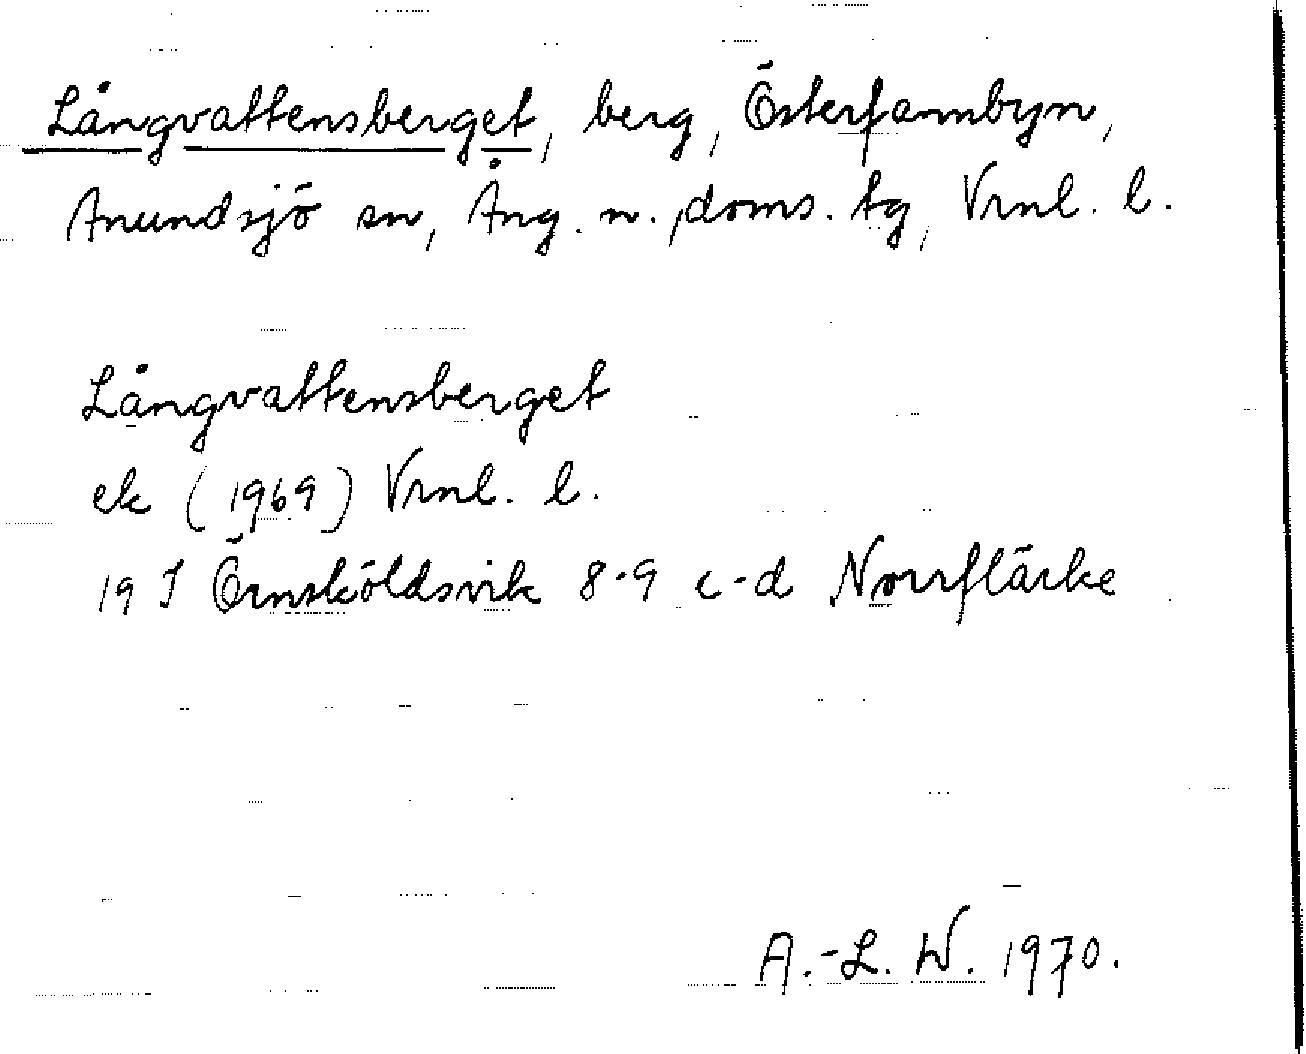 Långvattensberget, berg, Österfannbyn,
Anundsjö sn, Ång. n., doms. tg, Vrnl. l.
Långvattensberget
ek (1969) Vrnl. l.
19 I Örnsköldsvik 8-9 c-d Norrflärke
A.-L. W. 1970.